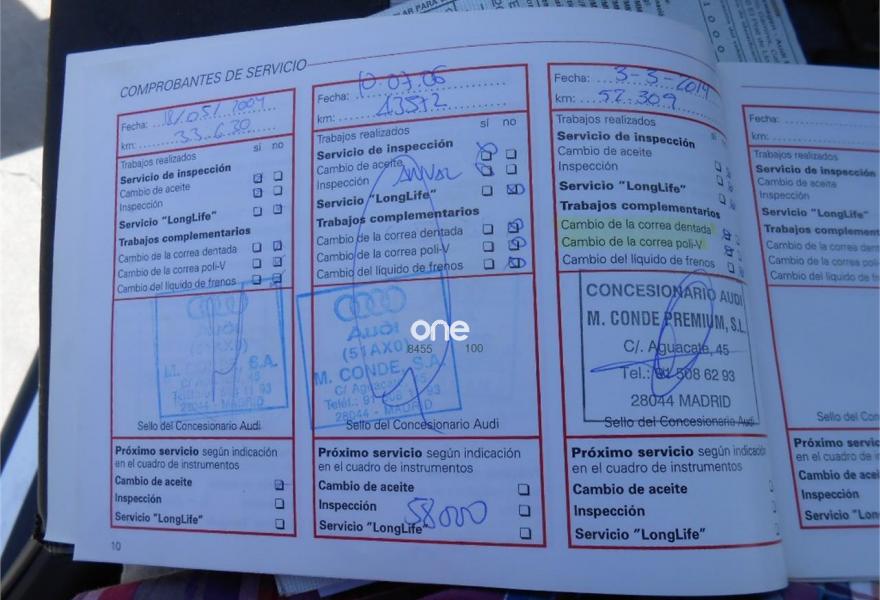 COMPROBANTES DE SERVICIO
Fecha: 18/05/2004
km: 33.630
Trabajos realizados
sí no
Servicio de inspección
Cambio de aceite
Inspección
Servicio "LongLife"
Trabajos complementarios
Cambio de la correa dentada
Cambio de la correa poli-V
Cambio del líquido de frenos
Audi
(51AX0)
M. CONDE, S.A.
28044 - MADRID
Sello del Concesionario Audi
Próximo servicio según indicación
en el cuadro de instrumentos
Cambio de aceite
Inspección
Servicio "LongLife"
10
Fecha: 10-07-06
km: 43572
Trabajos realizados
sí no
Servicio de inspección
Cambio de aceite
Inspección ANUAL
Servicio "LongLife"
Trabajos complementarios
Cambio de la correa dentada
Cambio de la correa poli-V
Cambio del líquido de frenos
Audi
(51AX0)
one
8455 100
M. CONDE, S.A.
C/ Aguacate, 45
28044 - MADRID
Sello del Concesionario Audi
Próximo servicio según indicación
en el cuadro de instrumentos
Cambio de aceite
Inspección 58000
Servicio "LongLife"
Fecha: 3-3-2014
km: 52.309
Trabajos realizados
sí
Servicio de inspección
Cambio de aceite
Inspección
Servicio "LongLife"
Trabajos complementarios
Cambio de la correa dentada
Cambio de la correa poli-V
Cambio del líquido de frenos
CONCESIONARIO AUDI
M. CONDE PREMIUM, S.L.
C/. Aguacate, 45
Tel.: 91 508 62 93
28044 MADRID
Sello del Concesionario Audi
Próximo servicio según indicación
en el cuadro de instrumentos
Cambio de aceite
Inspección
Servicio "LongLife"
Fecha:
km:
Trabajos realizados
Servicio de
Cambio de aceite
Inspección
Servicio "LongLife"
Trabajos
Cambio de la correa
Cambio de la correa
Cambio del líquido de
Sello del
Próximo
en el cuadro de
Cambio de aceite
Inspección
Servicio